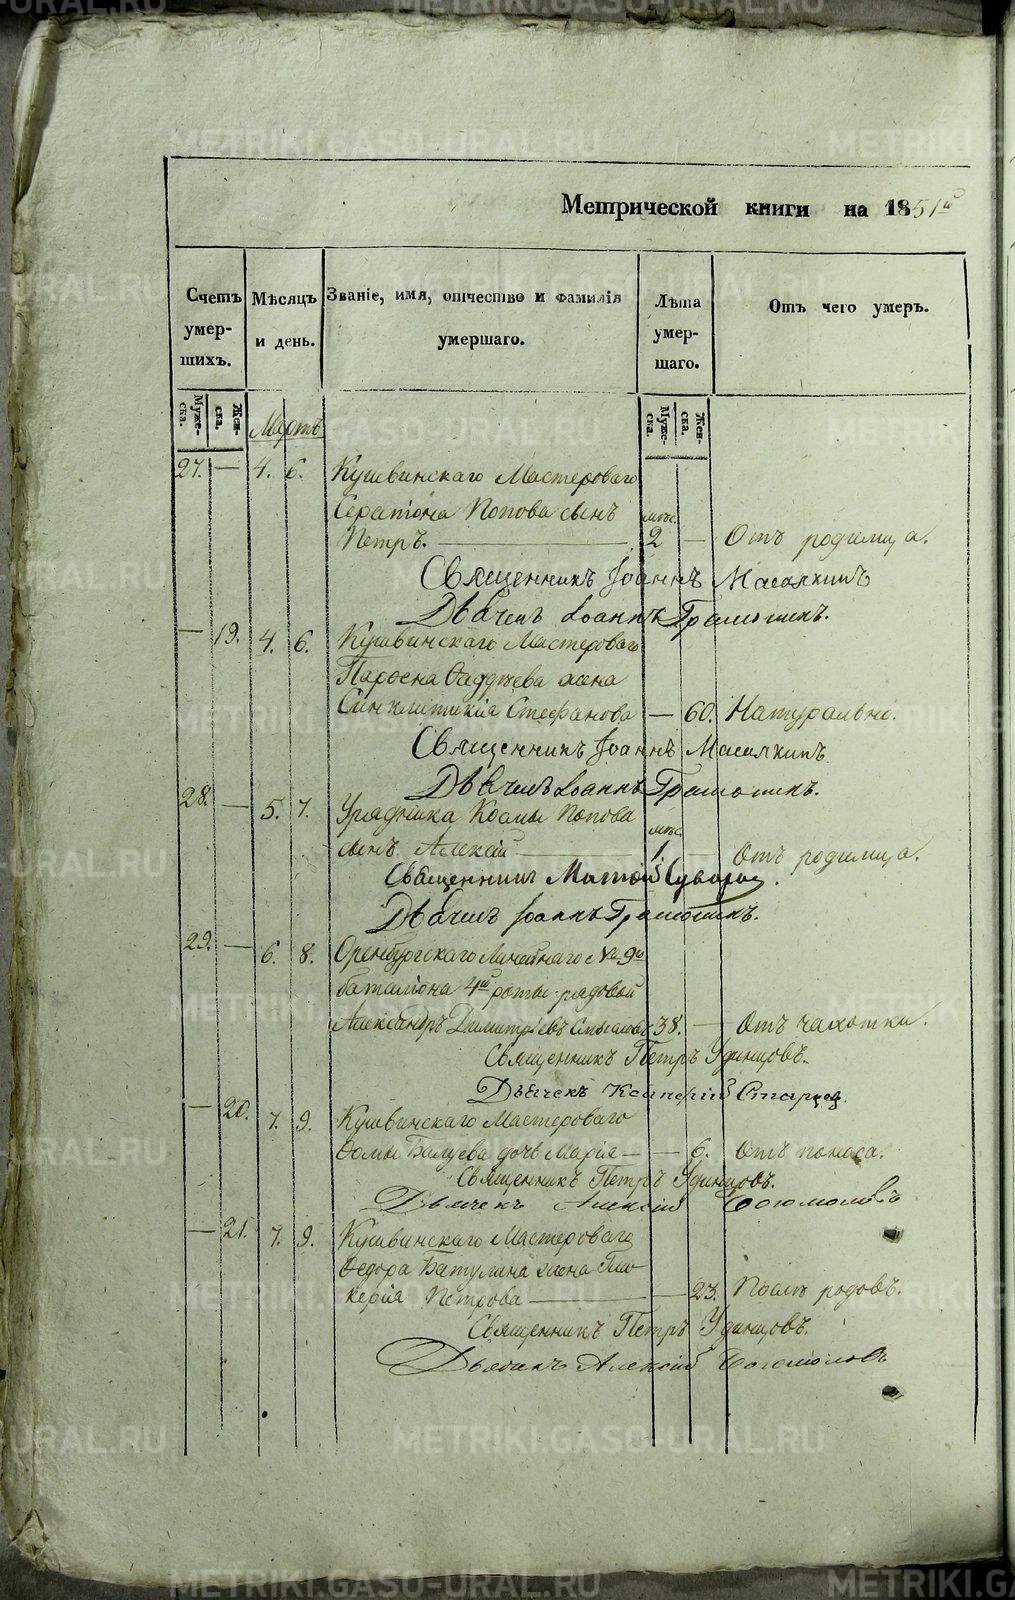 METRIKI.GASO-URAL.RU
Метрической книги на 1851й
Счетъ умер- шихъ.
Мѣсяцъ и день.
Званіе, имя, отчество и фамилія умершаго.
Лѣта умер- шаго.
Отъ чего умеръ.
Муже- ска.
Жен- ска.
Муже- ска.
Жен- ска.
Мартъ
27. — 4. 6. Кушвинскаго Мастероваго
Серапіона Попова сынъ
мѣс.
Петръ. 2 — Отъ родимца.
Священникъ Іоаннъ
Дьячекъ Іоаннъ
— 19. 4. 6. Кушвинскаго Мастероваго
Фаддѣева жена
Синклитикія Стефанова — 60. Натурально.
Священникъ Іоаннъ
Дьячекъ Іоаннъ
28. — 5. 7. Урядника Космы Попова
мѣс.
сынъ Алексій 1. — Отъ родимца.
Священникъ
Дьячекъ Іоаннъ
29. — 6. 8. Оренбургскаго Линейнаго № 9го
баталіона 4й роты рядовой
Александръ Димитріевъ 38. — Отъ чахотки.
Священникъ Петръ Удинцовъ.
Дьячекъ
— 20. 7. 9. Кушвинскаго Мастероваго
Ѳомы Балуева дочь Марія — — 6. Отъ поноса.
Священникъ Петръ Удинцовъ.
Дьячекъ Алексій Богомоловъ
— 21. 7. 9. Кушвинскаго Мастероваго
Ѳедора Батулина жена Гли-
керія Петрова — 23. Послѣ родовъ.
Священникъ Петръ Удинцовъ.
Дьячекъ Алексій Богомоловъ